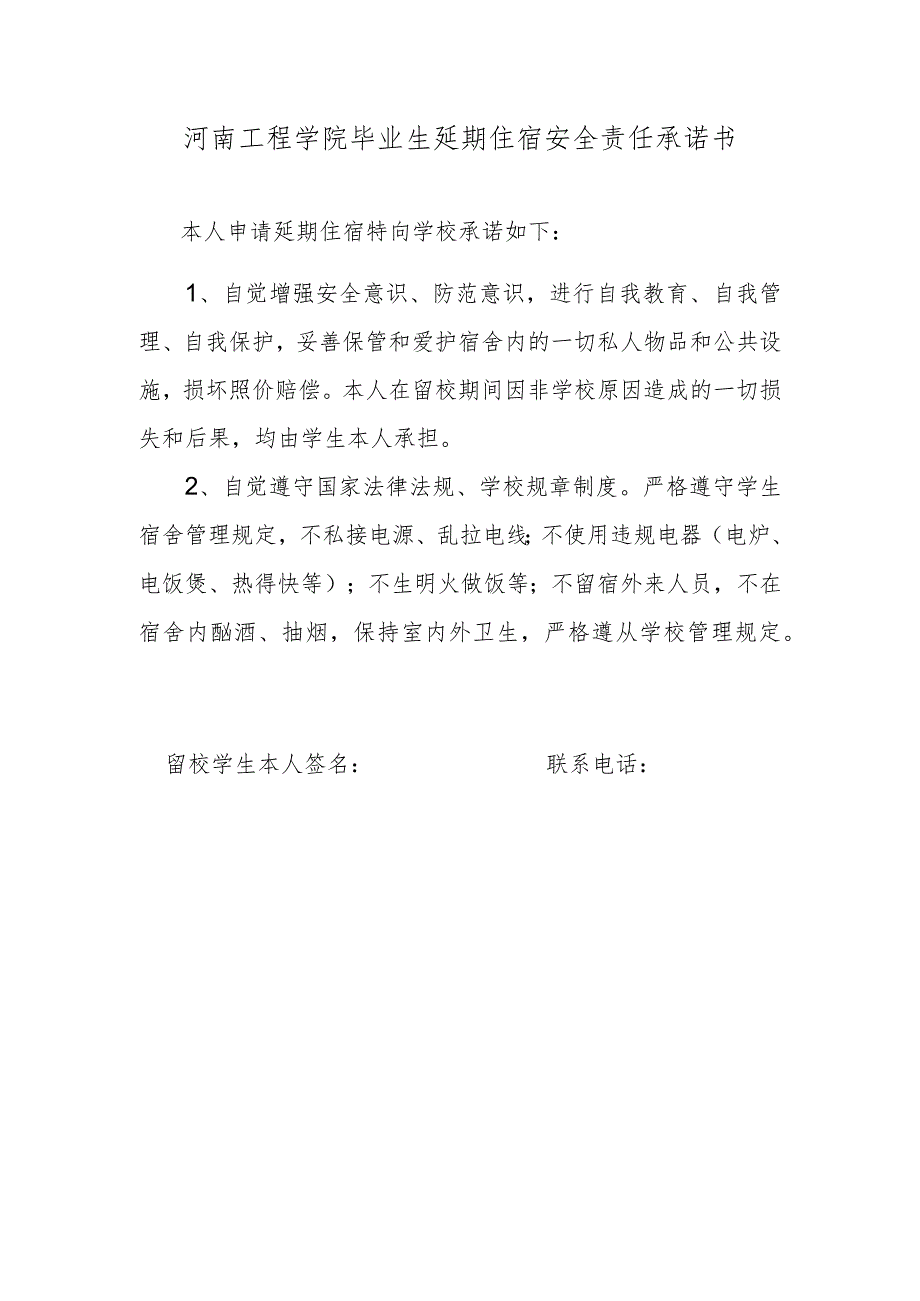 河南工程学院毕业生延期住宿安全责任承诺书
本人申请延期住宿特向学校承诺如下：
1、自觉增强安全意识、防范意识，进行自我教育、自我管
理、自我保护，妥善保管和爱护宿舍内的一切私人物品和公共设
施，损坏照价赔偿。本人在留校期间因非学校原因造成的一切损
失和后果，均由学生本人承担。
2、自觉遵守国家法律法规、学校规章制度。严格遵守学生
宿舍管理规定，不私接电源、乱拉电线；不使用违规电器（电炉、
电饭煲、热得快等）；不生明火做饭等；不留宿外来人员，不在
宿舍内酗洒、抽烟，保持室内外卫生，严格遵从学校管理规定。
留校学生本人签名： 联系电话：